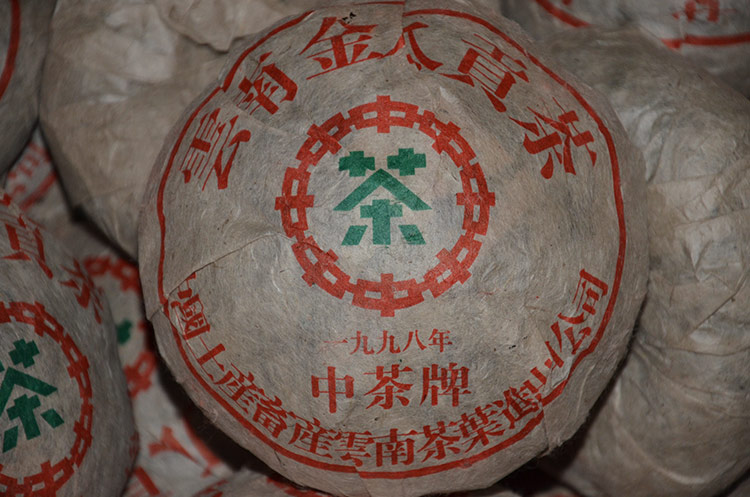 雲南金瓜貢茶
中中中中中中中中
茶
一九九八年
中茶牌
國土產畜產雲南茶葉進出公司